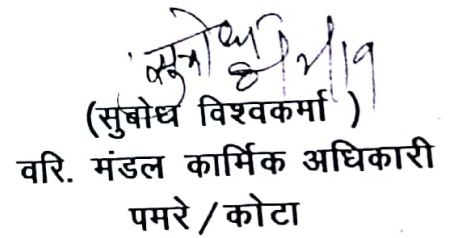 (सुबोध विश्वकर्मा )
वरि. मंडल कार्मिक अधिकारी
पमरे / कोटा